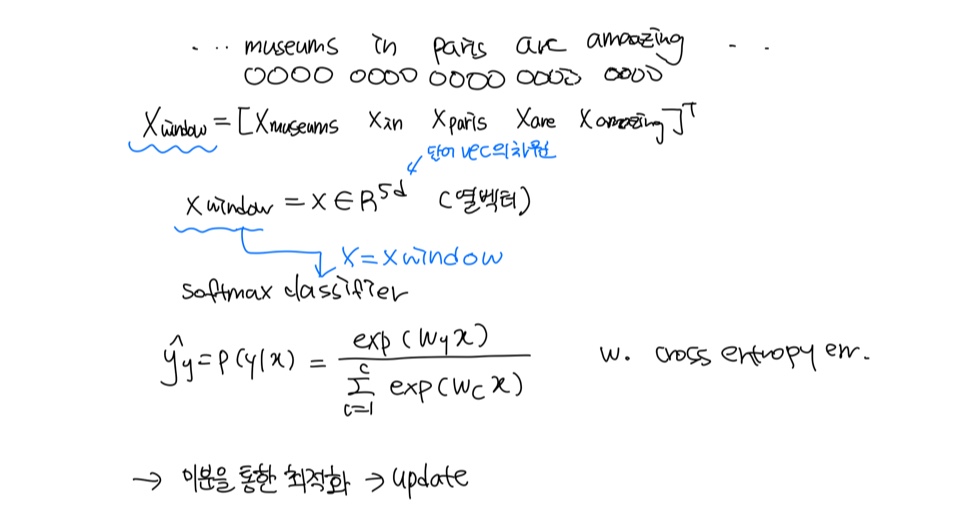 . .. museums in paris are amazing - .
0000 0000 0000 0000 0000
Xwindow = [Xmuseums Xin Xparis Xare Xamazing]ᵀ
단어 vec의 차원
X window = X ∈ R⁵ᵈ (열벡터)
X = X window
softmax classifier
ŷy = P(y|x) = exp(Wy x) / Σ_{c=1}^{C} exp(Wc x) w. cross entropy err.
→ 미분을 통한 최적화 → update